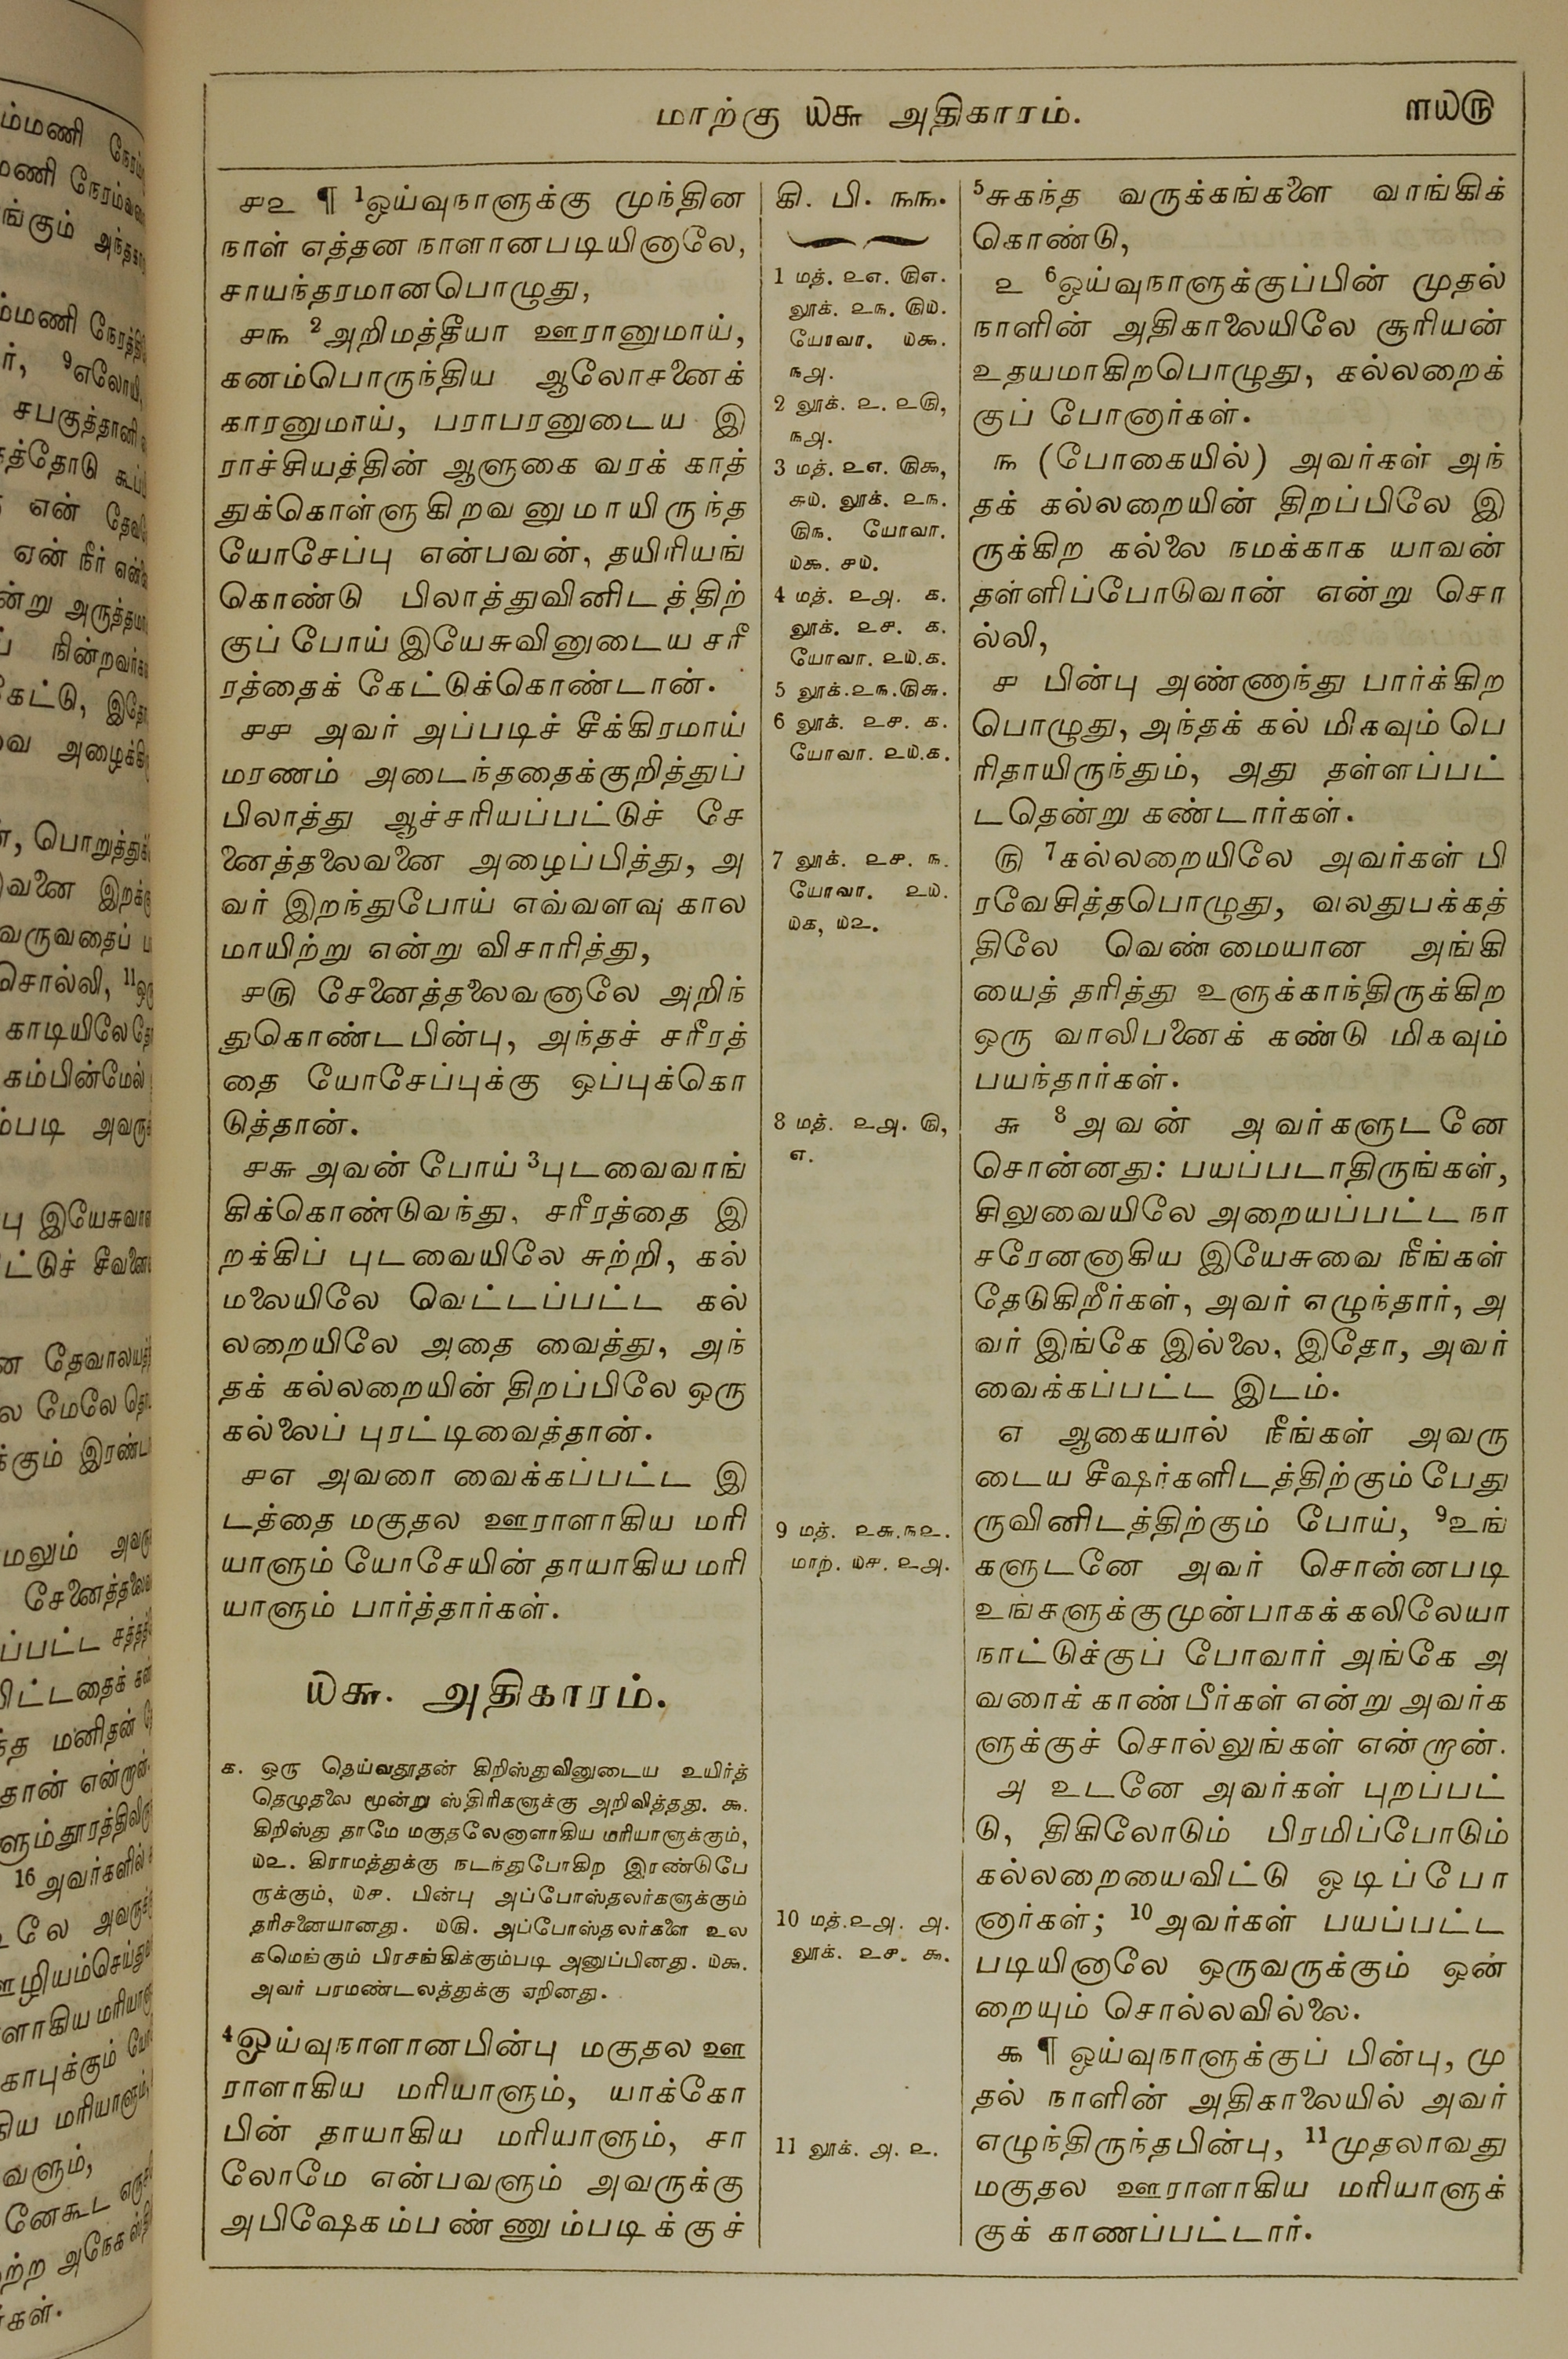 மாற்கு ௰௬ அதிகாரம்.
௱௰௫
௪௨ ¶ 1ஓய்வுநாளுக்கு முந்தின
நாள் எத்தன நாளானபடியினாலே,
சாயந்தரமானபொழுது,
௪௩ 2அறிமத்தீயா ஊரானுமாய்,
கனம்பொருந்திய ஆலோசனைக்
காரனுமாய், பராபரனுடைய இ
ராச்சியத்தின் ஆளுகை வரக் காத்
துக்கொள்ளுகிறவனுமாயிருந்த
யோசேப்பு என்பவன், தயிரியங்
கொண்டு பிலாத்துவினிடத்திற்
குப் போய் இயேசுவினுடைய சரீ
ரத்தைக் கேட்டுக்கொண்டான்.
௪௪ அவர் அப்படிச் சீக்கிரமாய்
மரணம் அடைந்ததைக்குறித்துப்
பிலாத்து ஆச்சரியப்பட்டுச் சே
னைத்தலைவனை அழைப்பித்து, அ
வர் இறந்துபோய் எவ்வளவு கால
மாயிற்று என்று விசாரித்து,
௪௫ சேனைத்தலைவனாலே அறிந்
துகொண்டபின்பு, அந்தச் சரீரத்
தை யோசேப்புக்கு ஒப்புக்கொ
டுத்தான்.
௪௬ அவன் போய் 3புடவைவாங்
கிக்கொண்டுவந்து, சரீரத்தை இ
றக்கிப் புடவையிலே சுற்றி, கல்
மலையிலே வெட்டப்பட்ட கல்
லறையிலே அதை வைத்து, அந்
தக் கல்லறையின் திறப்பிலே ஒரு
கல்லைப் புரட்டிவைத்தான்.
௪௭ அவரை வைக்கப்பட்ட இ
டத்தை மகுதல ஊராளாகிய மரி
யாளும் யோசேயின் தாயாகிய மரி
யாளும் பார்த்தார்கள்.
௰௬. அதிகாரம்.
௧. ஒரு தெய்வதூதன் கிறிஸ்துவினுடைய உயிர்த்
தெழுதலை மூன்று ஸ்திரிகளுக்கு அறிவித்தது. ௯.
கிறிஸ்து தாமே மகுதலேனாளாகிய மரியாளுக்கும்,
௰௨. கிராமத்துக்கு நடந்துபோகிற இரண்டுபே
ருக்கும், ௰௪. பின்பு அப்போஸ்தலர்களுக்கும்
தரிசனையானது. ௰௫. அப்போஸ்தலர்களை உல
கமெங்கும் பிரசங்கிக்கும்படி அனுப்பினது. ௰௯.
அவர் பரமண்டலத்துக்கு ஏறினது.
4ஓய்வுநாளானபின்பு மகுதல ஊ
ராளாகிய மரியாளும், யாக்கோ
பின் தாயாகிய மரியாளும், சா
லோமே என்பவளும் அவருக்கு
அபிஷேகம்பண்ணும்படிக்குச்
கி. பி. ௩௩.
1 மத். ௨௭. ௫௭.
லூக். ௨௩. ௫௰.
யோவா. ௰௯.
௩௮.
2 லூக். ௨. ௨௫,
௩௮.
3 மத். ௨௭. ௫௯,
௬௰. லூக். ௨௩.
௫௩. யோவா.
௰௯. ௪௰.
4 மத். ௨௮. ௧.
லூக். ௨௪. ௧.
யோவா. ௨௰.௧.
5 லூக்.௨௩.௫௬.
6 லூக். ௨௪. ௧.
யோவா. ௨௰.௧.
7 லூக். ௨௪. ௩.
யோவா. ௨௰.
௰௧, ௰௨.
8 மத். ௨௮. ௫,
௭.
9 மத். ௨௬.௩௨.
மாற். ௰௪. ௨௮.
10 மத்.௨௮. ௮.
லூக். ௨௪. ௯.
11 லூக். ௮. ௨.
5சுகந்த வருக்கங்களை வாங்கிக்
கொண்டு,
௨ 6ஓய்வுநாளுக்குப்பின் முதல்
நாளின் அதிகாலையிலே சூரியன்
உதயமாகிறபொழுது, கல்லறைக்
குப் போனார்கள்.
௩ (போகையில்) அவர்கள் அந்
தக் கல்லறையின் திறப்பிலே இ
ருக்கிற கல்லை நமக்காக யாவன்
தள்ளிப்போடுவான் என்று சொ
ல்லி,
௪ பின்பு அண்ணாந்து பார்க்கிற
பொழுது, அந்தக் கல் மிகவும் பெ
ரிதாயிருந்தும், அது தள்ளப்பட்
டதென்று கண்டார்கள்.
௫ 7கல்லறையிலே அவர்கள் பி
ரவேசித்தபொழுது, வலதுபக்கத்
திலே வெண்மையான அங்கி
யைத் தரித்து உளுக்காந்திருக்கிற
ஒரு வாலிபனைக் கண்டு மிகவும்
பயந்தார்கள்.
௬ 8அவன் அவர்களுடனே
சொன்னது: பயப்படாதிருங்கள்,
சிலுவையிலே அறையப்பட்ட நா
சரேனனாகிய இயேசுவை நீங்கள்
தேடுகிறீர்கள், அவர் எழுந்தார், அ
வர் இங்கே இல்லை, இதோ, அவர்
வைக்கப்பட்ட இடம்.
௭ ஆகையால் நீங்கள் அவரு
டைய சீஷர்களிடத்திற்கும் பேது
ருவினிடத்திற்கும் போய், 9உங்
களுடனே அவர் சொன்னபடி
உங்களுக்குமுன்பாகக் கலிலேயா
நாட்டுக்குப் போவார் அங்கே அ
வரைக் காண்பீர்கள் என்று அவர்க
ளுக்குச் சொல்லுங்கள் என்றான்.
௮ உடனே அவர்கள் புறப்பட்
டு, திகிலோடும் பிரமிப்போடும்
கல்லறையைவிட்டு ஓடிப்போ
னார்கள்; 10அவர்கள் பயப்பட்ட
படியினாலே ஒருவருக்கும் ஒன்
றையும் சொல்லவில்லை.
௯ ¶ ஓய்வுநாளுக்குப் பின்பு, மு
தல் நாளின் அதிகாலையில் அவர்
எழுந்திருந்தபின்பு, 11முதலாவது
மகுதல ஊராளாகிய மரியாளுக்
குக் காணப்பட்டார்.